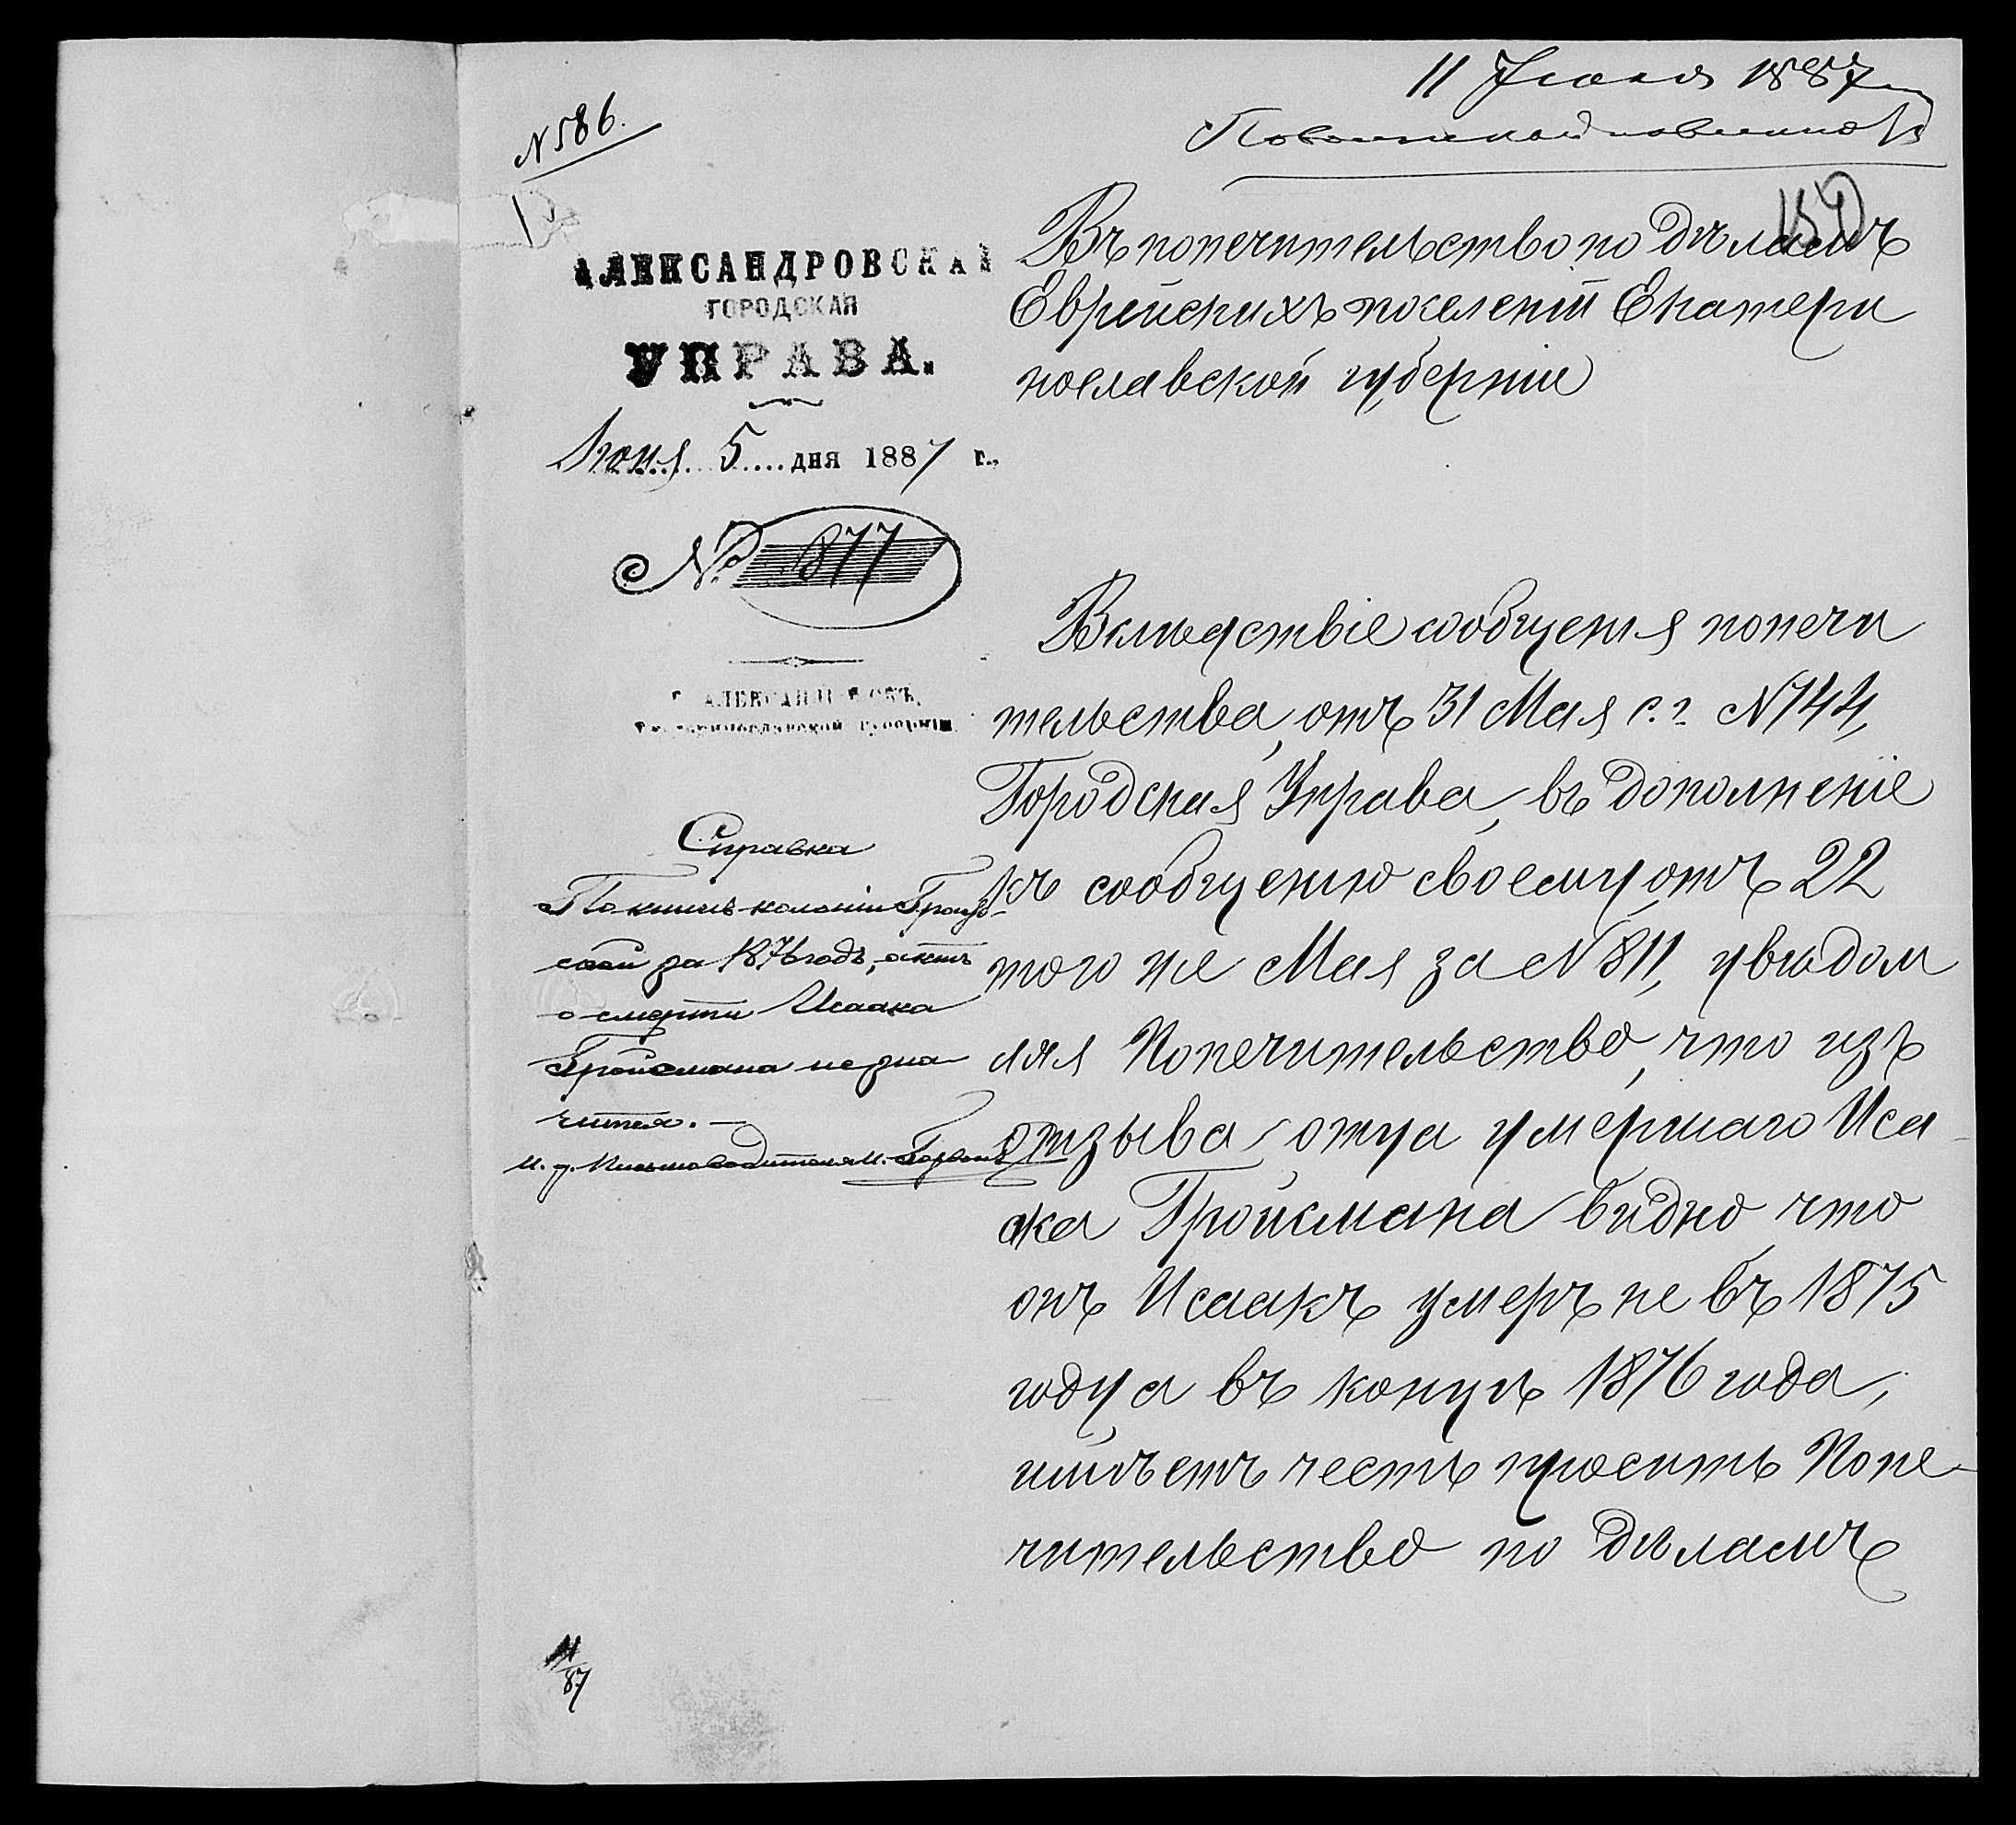 11 Іюня 1887
По воинской повинности
N 586.
150
АЛЕКСАНДРОВСКАЯ
ГОРОДСКАЯ
УПРАВА.
Іюня 5 дня 1887 г.
№ 877
Г. АЛЕКСАНДРОВСКЪ,
Екатеринославской губерніи.
Въ попечительство по дѣламъ
Еврейскихъ поселеній Екатери
нославской губерніи
Вслѣдствіе сообщенія попечи
тельства, отъ 31 Мая с. г. N 744,
Городская Управа, въ дополненіе
къ сообщенію своему отъ 22
того же Мая за N 811, увѣдом
ляя Попечительство, что изъ
отзыва отца умершаго Иса
ака Гройсмана видно, что
онъ Исаакъ умеръ не въ 1875
году, а въ концѣ 1876 года,
имѣетъ честь просить Попе-
чительство по дѣламъ
Справка
По книгѣ колоніи
за 1876 годъ, актъ
о смерти Исаака
Гройсмана не зна
чится. —
И. д. Письмоводителя
87